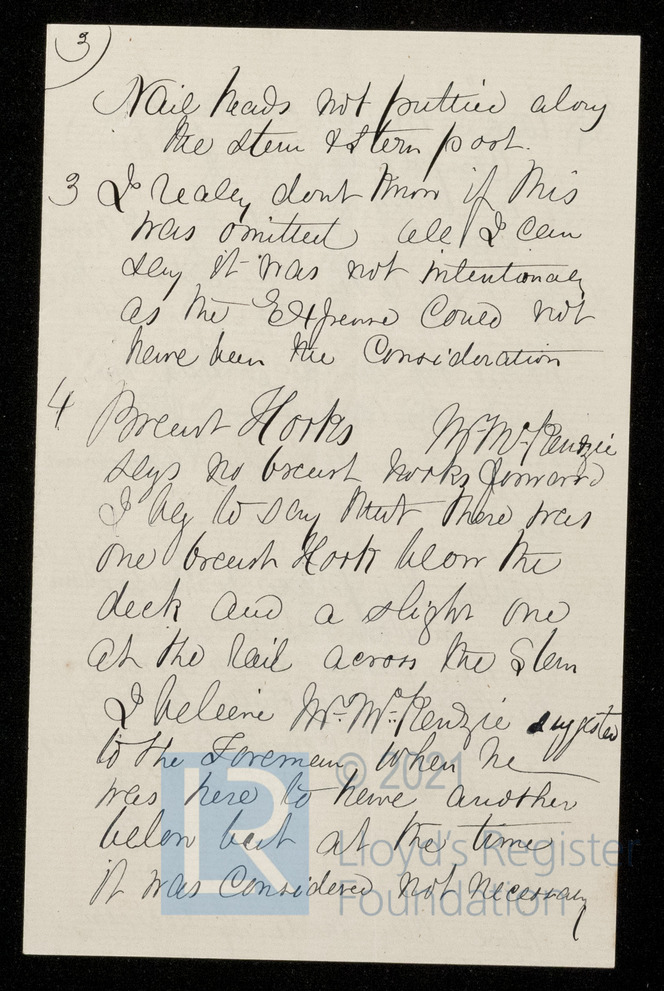 3
Nail heads not puttied along
the stem & stern post.
3 I realey dont know if this
was omitted all I can
say it was not intentionaly
as the Expense Could not
have been the Consideration
4 Breast Hooks Mr. McKenzie
says no breast hooks forward
I beg to say that there was
one breast Hook below the
deck and a slight one
at the rail across the Stem
I beleeive Mr. McKenzie suggested
to the Foreman when he
was here to have another
below but at the time
it was Considered not necessary
LR © 2021
Lloyd's Register
Foundation